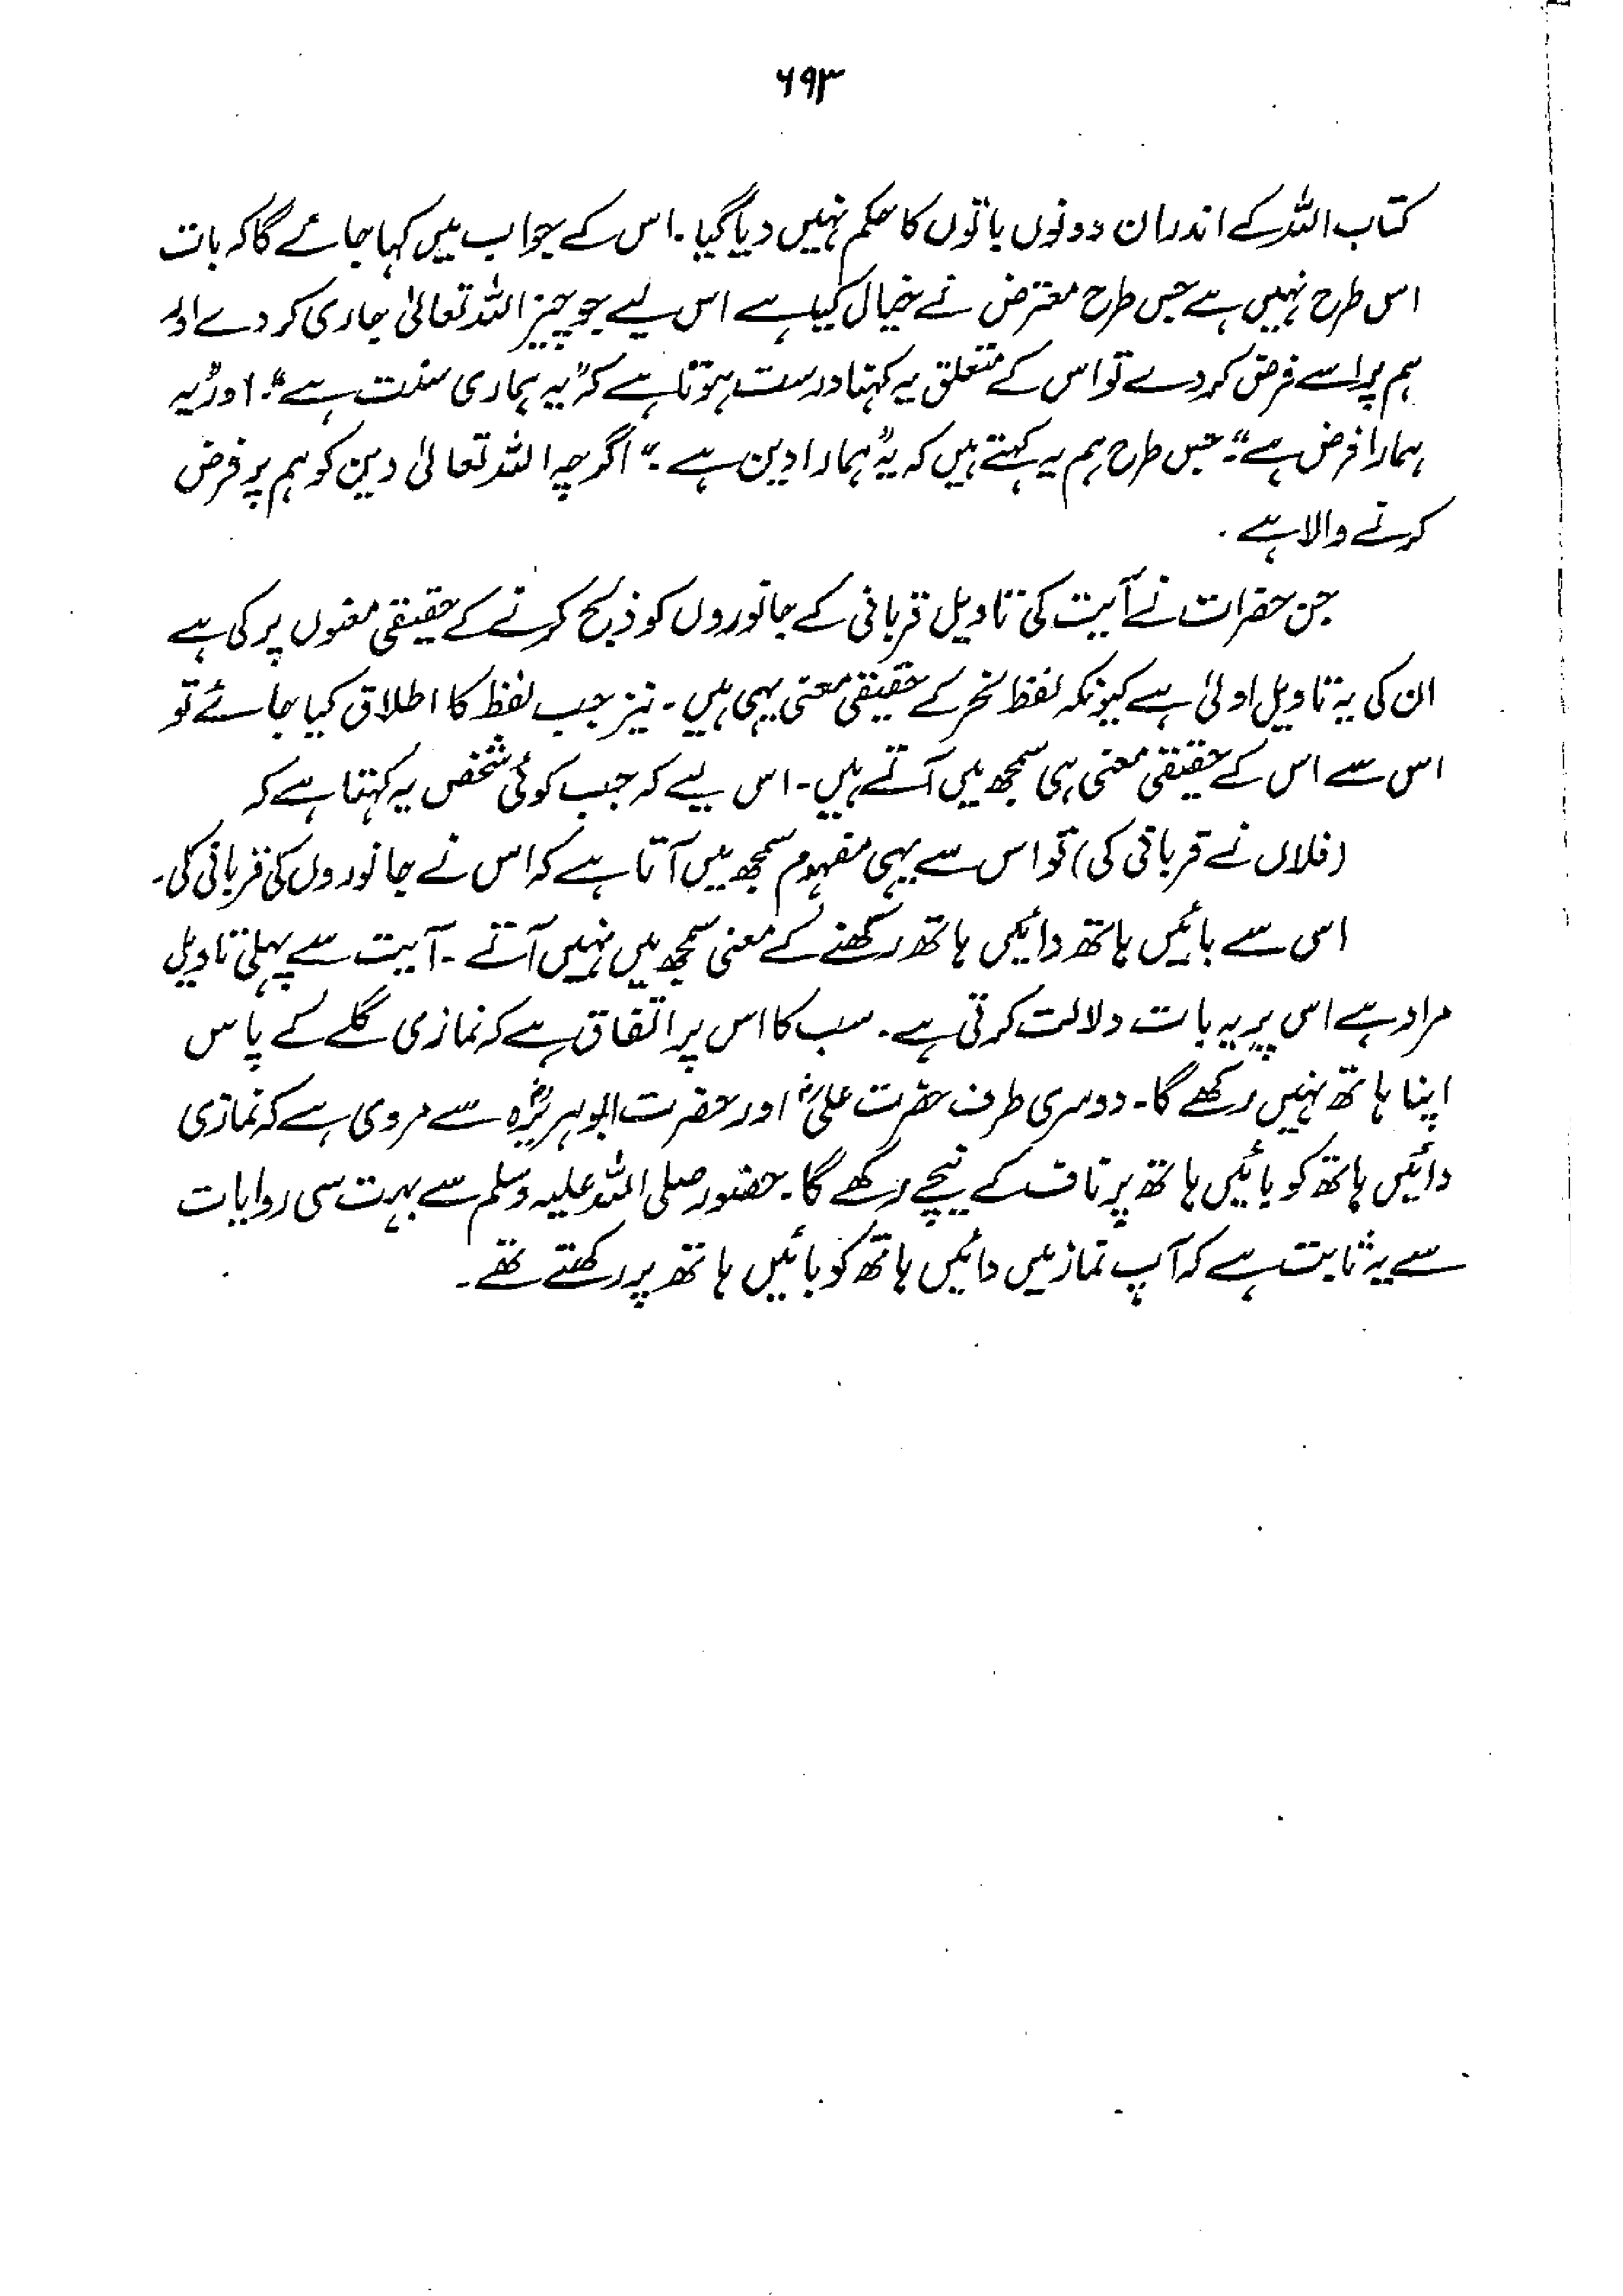 ۶۹۳
کتاب اللہ کے اندر ان دونوں باتوں کا حکم نہیں دیا گیا۔ اس کے جواب میں کہا جائے گا کہ بات
اس طرح نہیں ہے جس طرح معترض نے خیال کیا ہے اس لیے جو چیز اللہ تعالیٰ جاری کر دے اور
ہم پر اسے فرض کر دے تو اس کے متعلق یہ کہنا درست ہوتا ہے کہ "یہ ہماری سنت ہے"۔ اور "یہ
ہمارا فرض ہے"۔ جس طرح ہم یہ کہتے ہیں کہ یہ "ہمارا دین ہے۔" اگرچہ اللہ تعالیٰ دین کو ہم پر فرض
کرنے والا ہے۔
جن حضرات نے آیت کی تاویل قربانی کے جانوروں کو ذبح کرنے کے حقیقی معنوں پر کی ہے
ان کی یہ تاویل اولیٰ ہے کیونکہ لفظ نحر کے حقیقی معنی یہی ہیں۔ نیز جب لفظ کا اطلاق کیا جائے تو
اس سے اس کے حقیقی معنی ہی سمجھ میں آتے ہیں۔ اس لیے کہ جب کوئی شخص یہ کہتا ہے کہ
(فلاں نے قربانی کی) تو اس سے یہی مفہوم سمجھ میں آتا ہے کہ اس نے جانوروں کی قربانی کی۔
اس سے بائیں ہاتھ دائیں ہاتھ رکھنے کے معنی سمجھ میں نہیں آتے۔ آیت سے پہلی تاویل
مراد ہے اس پر یہ بات دلالت کرتی ہے۔ سب کا اس پر اتفاق ہے کہ نمازی گلے کے پاس
اپنا ہاتھ نہیں رکھے گا۔ دوسری طرف حضرت علیؓ اور حضرت ابوہریرہؓ سے مروی ہے کہ نمازی
دائیں ہاتھ کو بائیں ہاتھ پر ناف کے نیچے رکھے گا۔ حضور صلی اللہ علیہ وسلم سے بہت سی روایات
سے یہ ثابت ہے کہ آپ نماز میں دائیں ہاتھ کو بائیں ہاتھ پر رکھتے تھے۔